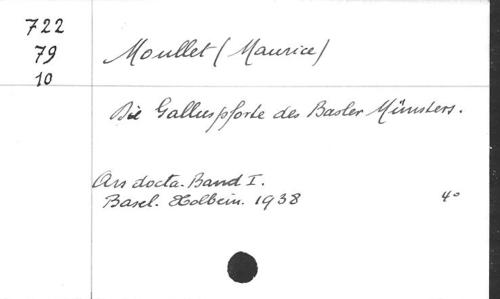 722
79
10
Moullet (Maurice)
Die Galluspforte des Basler Münsters.
Ars docta. Band I.
Basel. Holbein. 1938 4°